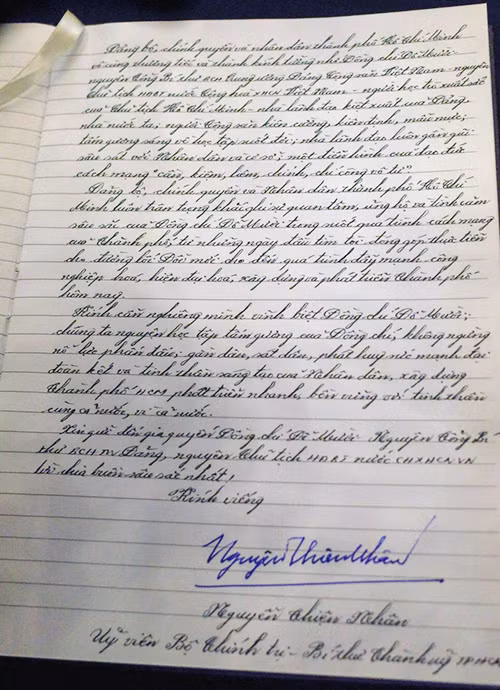 Đảng bộ, chính quyền và nhân dân thành phố Hồ Chí Minh
vô cùng thương tiếc và thành kính tưởng nhớ Đồng chí Đỗ Mười -
nguyên Tổng Bí thư BCH Trung ương Đảng Cộng sản Việt Nam - nguyên
Chủ tịch HĐBT nước Cộng hoà XHCN Việt Nam - người học trò xuất sắc
của Chủ tịch Hồ Chí Minh - nhà lãnh đạo kiệt xuất của Đảng,
nhà nước ta; người Cộng sản kiên cường, kiên định, mẫu mực;
tấm gương sáng về học tập suốt đời; nhà lãnh đạo luôn gần gũi
sâu sát với Nhân dân và cơ sở; một điển hình của đạo đức
cách mạng "cần, kiệm, liêm, chính, chí công vô tư".
Đảng bộ, chính quyền và Nhân dân Thành phố Hồ Chí
Minh luôn trân trọng khắc ghi sự quan tâm, ủng hộ và tình cảm
sâu sắc của Đồng chí Đỗ Mười trong suốt quá trình cách mạng
của Thành phố, từ những ngày đầu tìm tòi, đóng góp thực tiễn
cho đường lối Đổi mới cho đến quá trình đẩy mạnh công
nghiệp hoá, hiện đại hoá, xây dựng và phát triển Thành phố
hôm nay.
Kính cẩn nghiêng mình vĩnh biệt Đồng chí Đỗ Mười;
chúng ta nguyện học tập tấm gương của Đồng chí, không ngừng
nỗ lực phấn đấu; gần dân, sát dân, phát huy sức mạnh đại
đoàn kết và tinh thần sáng tạo của Nhân dân, xây dựng
Thành phố HCM phát triển nhanh, bền vững với tinh thần
cùng cả nước, vì cả nước.
Xin gửi đến gia quyến Đồng chí Đỗ Mười Nguyên Tổng Bí
thư BCH TW Đảng, nguyên Chủ tịch HĐBT nước CHXHCN VN
lời chia buồn sâu sắc nhất!
Kính viếng
Nguyễn Thiện Nhân
Nguyễn Thiện Nhân
Uỷ viên Bộ Chính trị - Bí thư Thành uỷ TP.HCM